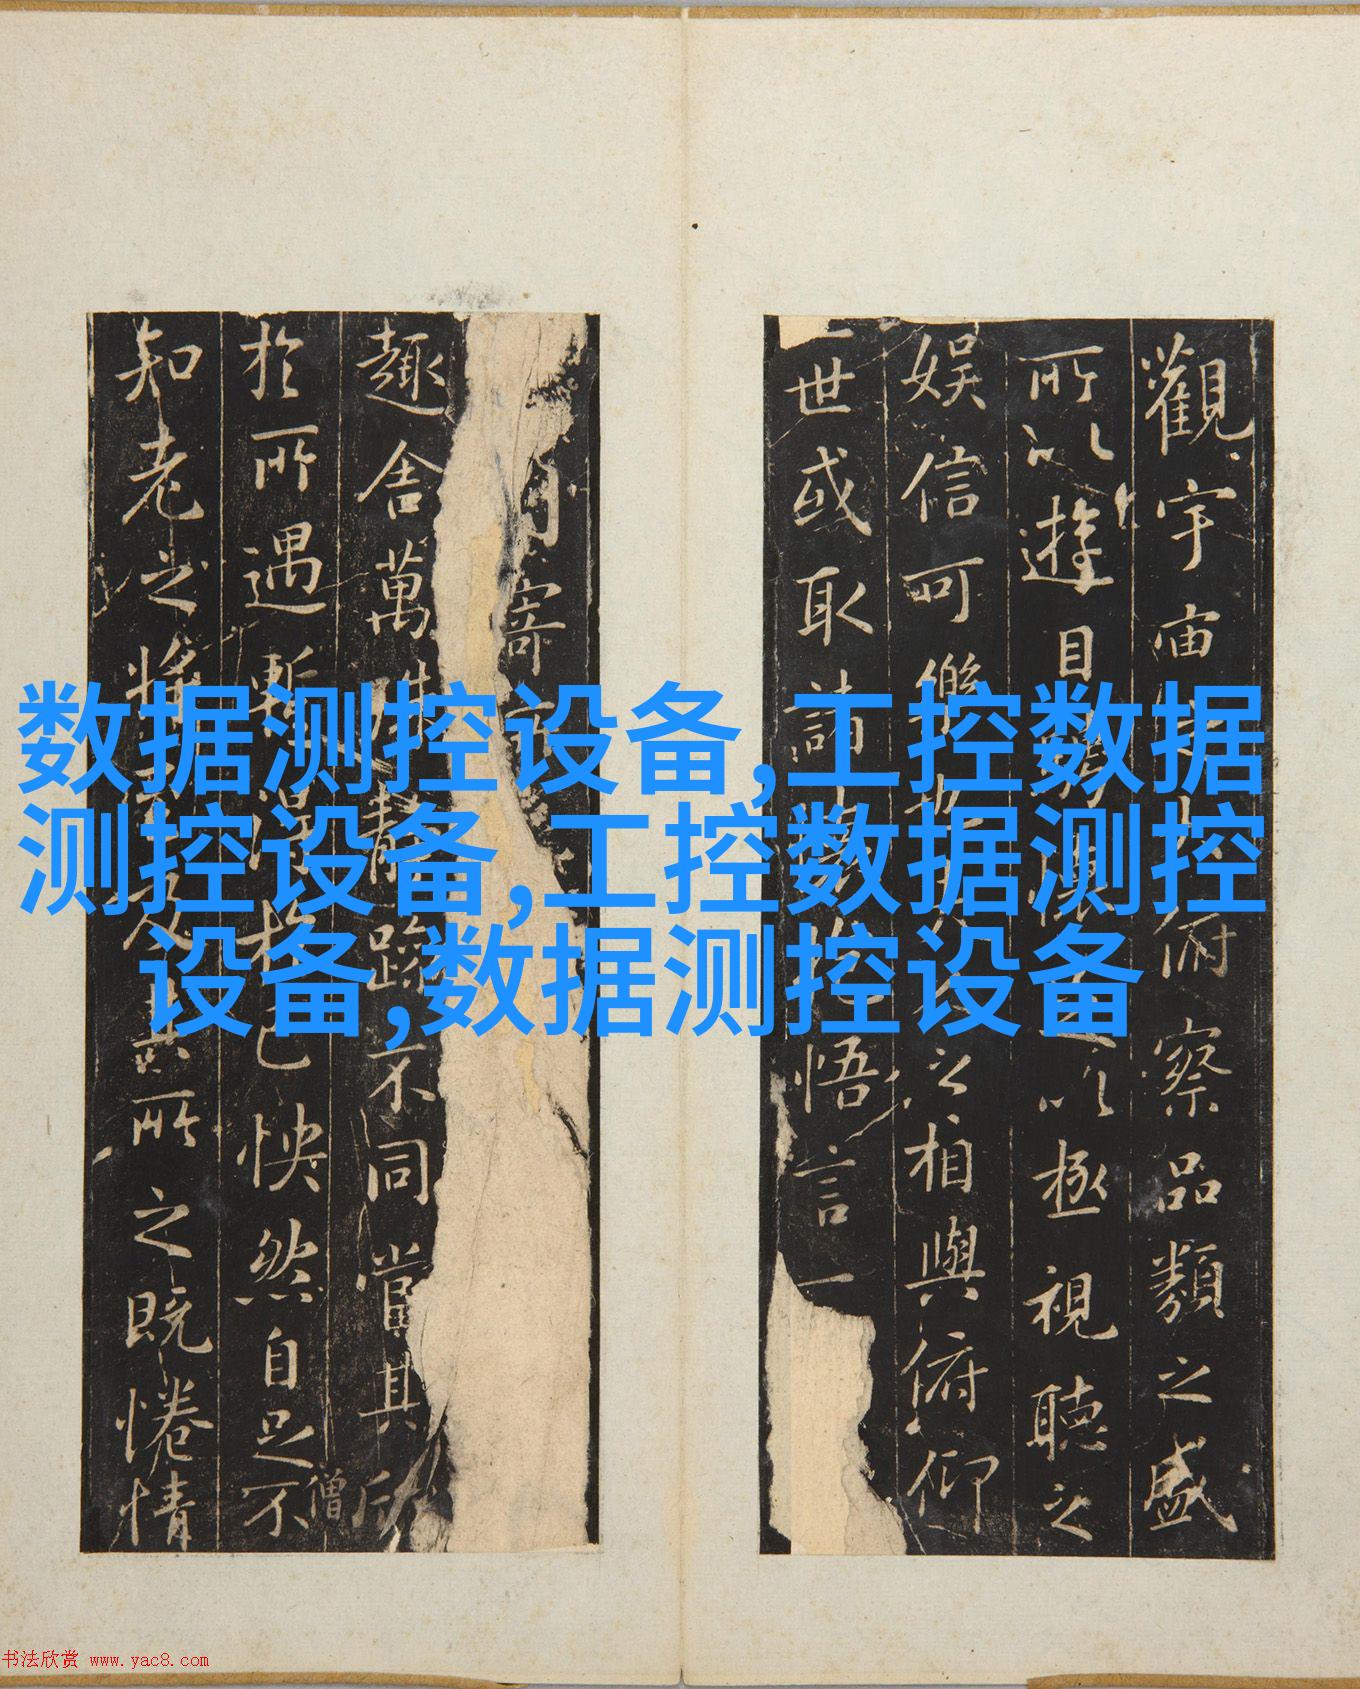 数据测控设备,工控数据
测控设备,工控数据测控
设备,数据测控设备
觀宇宙俯察品類之盛
所以遊目騁懷足以極視聽之
娛信可樂也夫人之相與俯仰
世或取諸懷抱悟言一
寄
趣舍萬殊靜躁不同當其欣
僧
於所遇暫得於己怏然自足不
知老之將至及其所之既惓情
书法欣赏 www.yac8.com